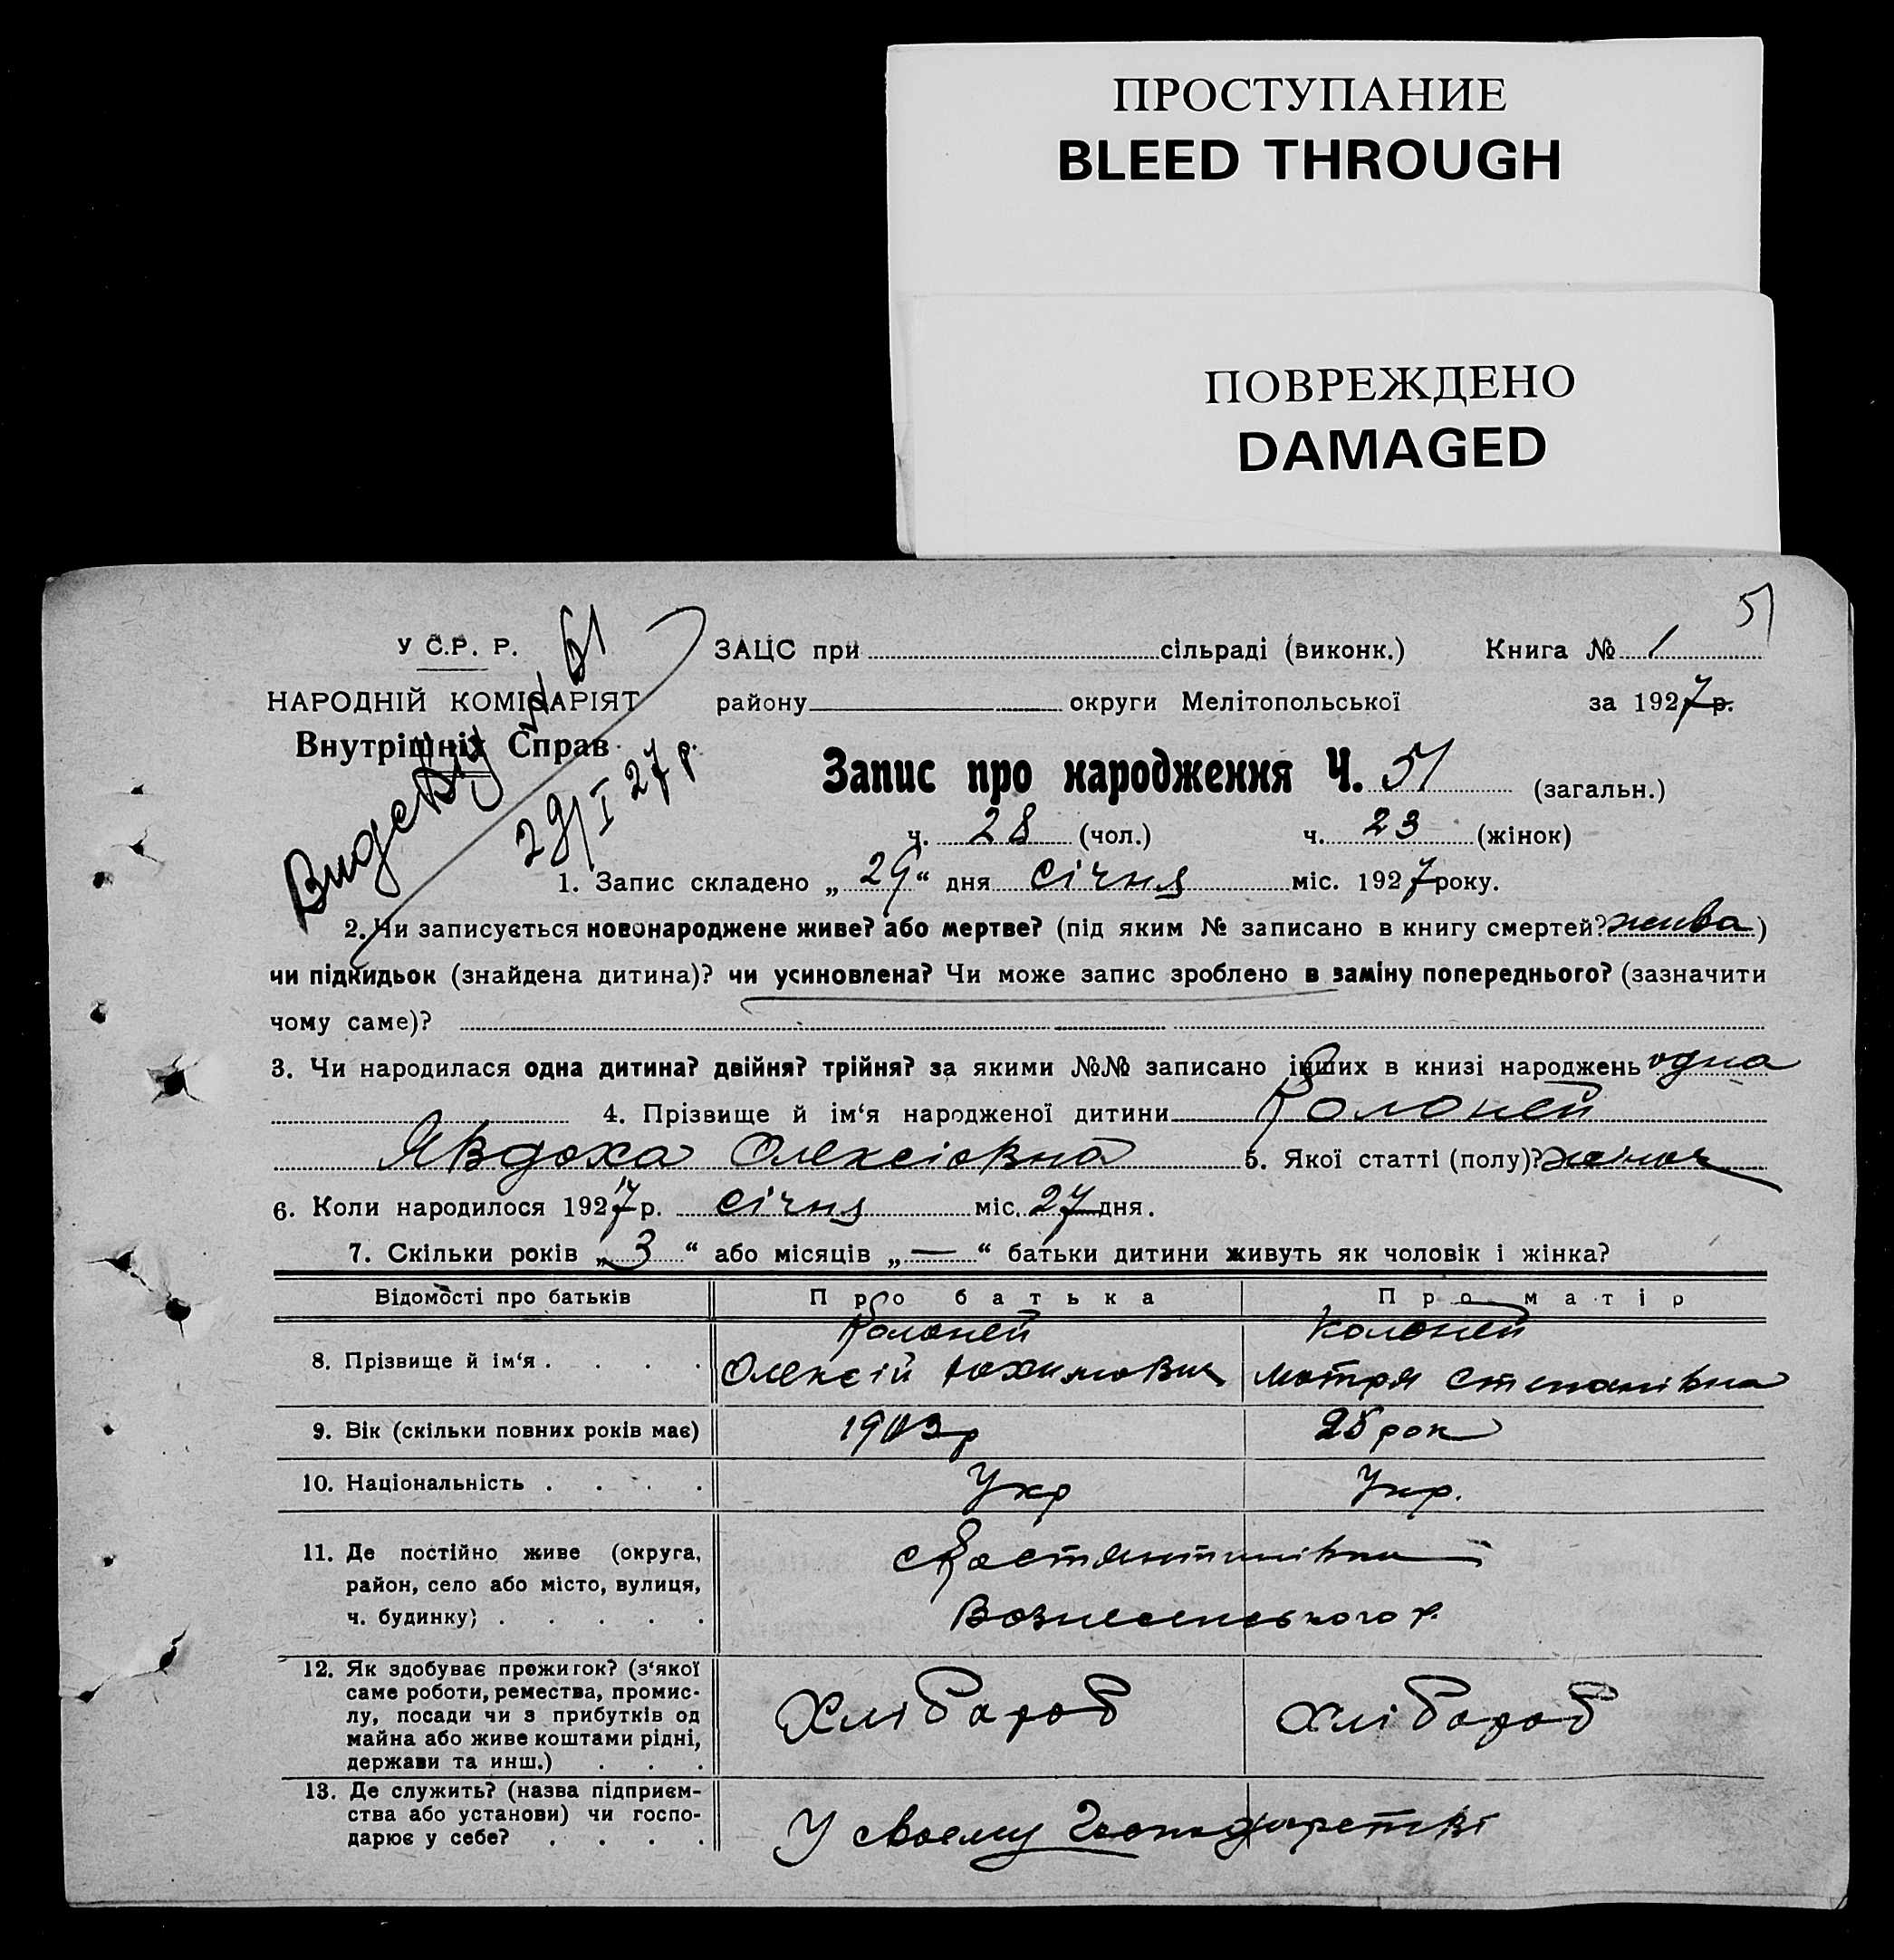 ПРОСТУПАНИЕ
BLEED THROUGH
ПОВРЕЖДЕНО
DAMAGED
51
У С.Р. Р.
ЗАЦС при сільраді (виконк.) Книга № 1
НАРОДНІЙ КОМІСАРІЯТ району округи Мелітопольської за 1927 р.
Внутрішніх Справ
№ 61
29/I 27 р.
Запис про народження Ч. 51 (загальн.)
ч. 28 (чол.) ч. 23 (жінок)
1. Запис складено „ 29 “ дня січня міс. 1927 року.
2. Чи записується новонароджене живе? або мертве? (під яким № записано в книгу смертей? жива)
чи підкидьок (знайдена дитина)? чи усиновлена? Чи може запис зроблено в заміну попереднього? (зазначити
чому саме)?
3. Чи народилася одна дитина? двійня? трійня? за якими №№ записано інших в книзі народжень одна
4. Прізвище й ім‘я народженої дитини Колоней
Явдоха Олексіовна 5. Якої статті (полу)? жіноч
6. Коли народилося 1927 р. січня міс. 27 дня.
7. Скільки років „ 3 “ або місяців „ — “ батьки дитини живуть як чоловік і жінка?
Відомості про батьків Про батька Про матір
Колоней Колоней
8. Прізвище й ім‘я . . . . Олексій Юхимович Мотря Степанівна
9. Вік (скільки повних років має) 1903 р 25 рок
10. Національність . . . . Укр Укр.
11. Де постійно живе (округа, с Костянтинівка
район, село або місто, вулиця,
ч. будинку) . . . . . Вознесенського р.
12. Як здобуває прожиток? (з‘якої
саме роботи, ремества, промис-
лу, посади чи з прибутків од Хлібороб Хлібороб
майна або живе коштами рідні,
держави та инш.) . . .
13. Де служить? (назва підприєм-
ства або установи) чи госпо- У своєму господарстві
дарює у себе? . . . .